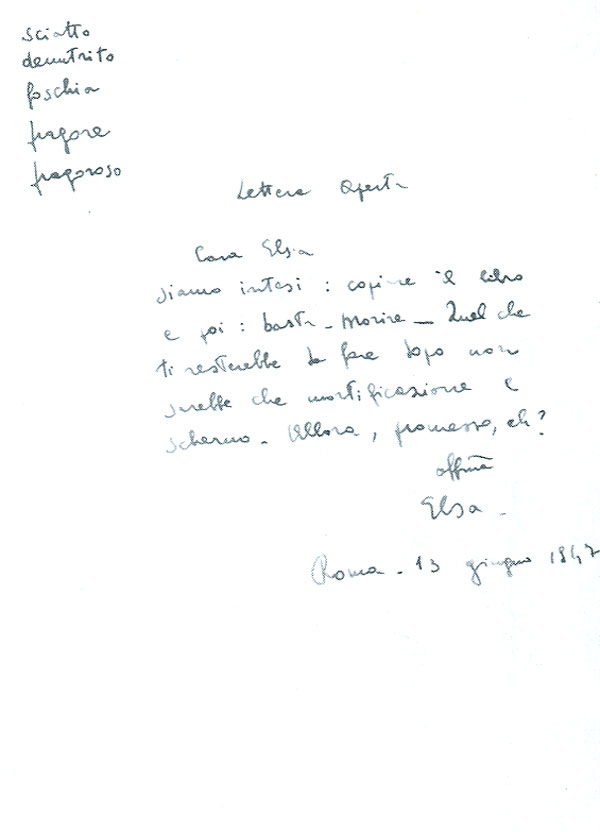 sciatto
denutrito
foschia
fragore
fragoroso
Lettera aperta
Cara Elsa
siamo intesi : copiare il libro
e poi : basta - morire - Quel che
ti resterebbe da fare dopo non
sarebbe che mortificazione e
scherno - Allora, promesso, eh?
affma
Elsa -
Roma - 13 giugno 1947